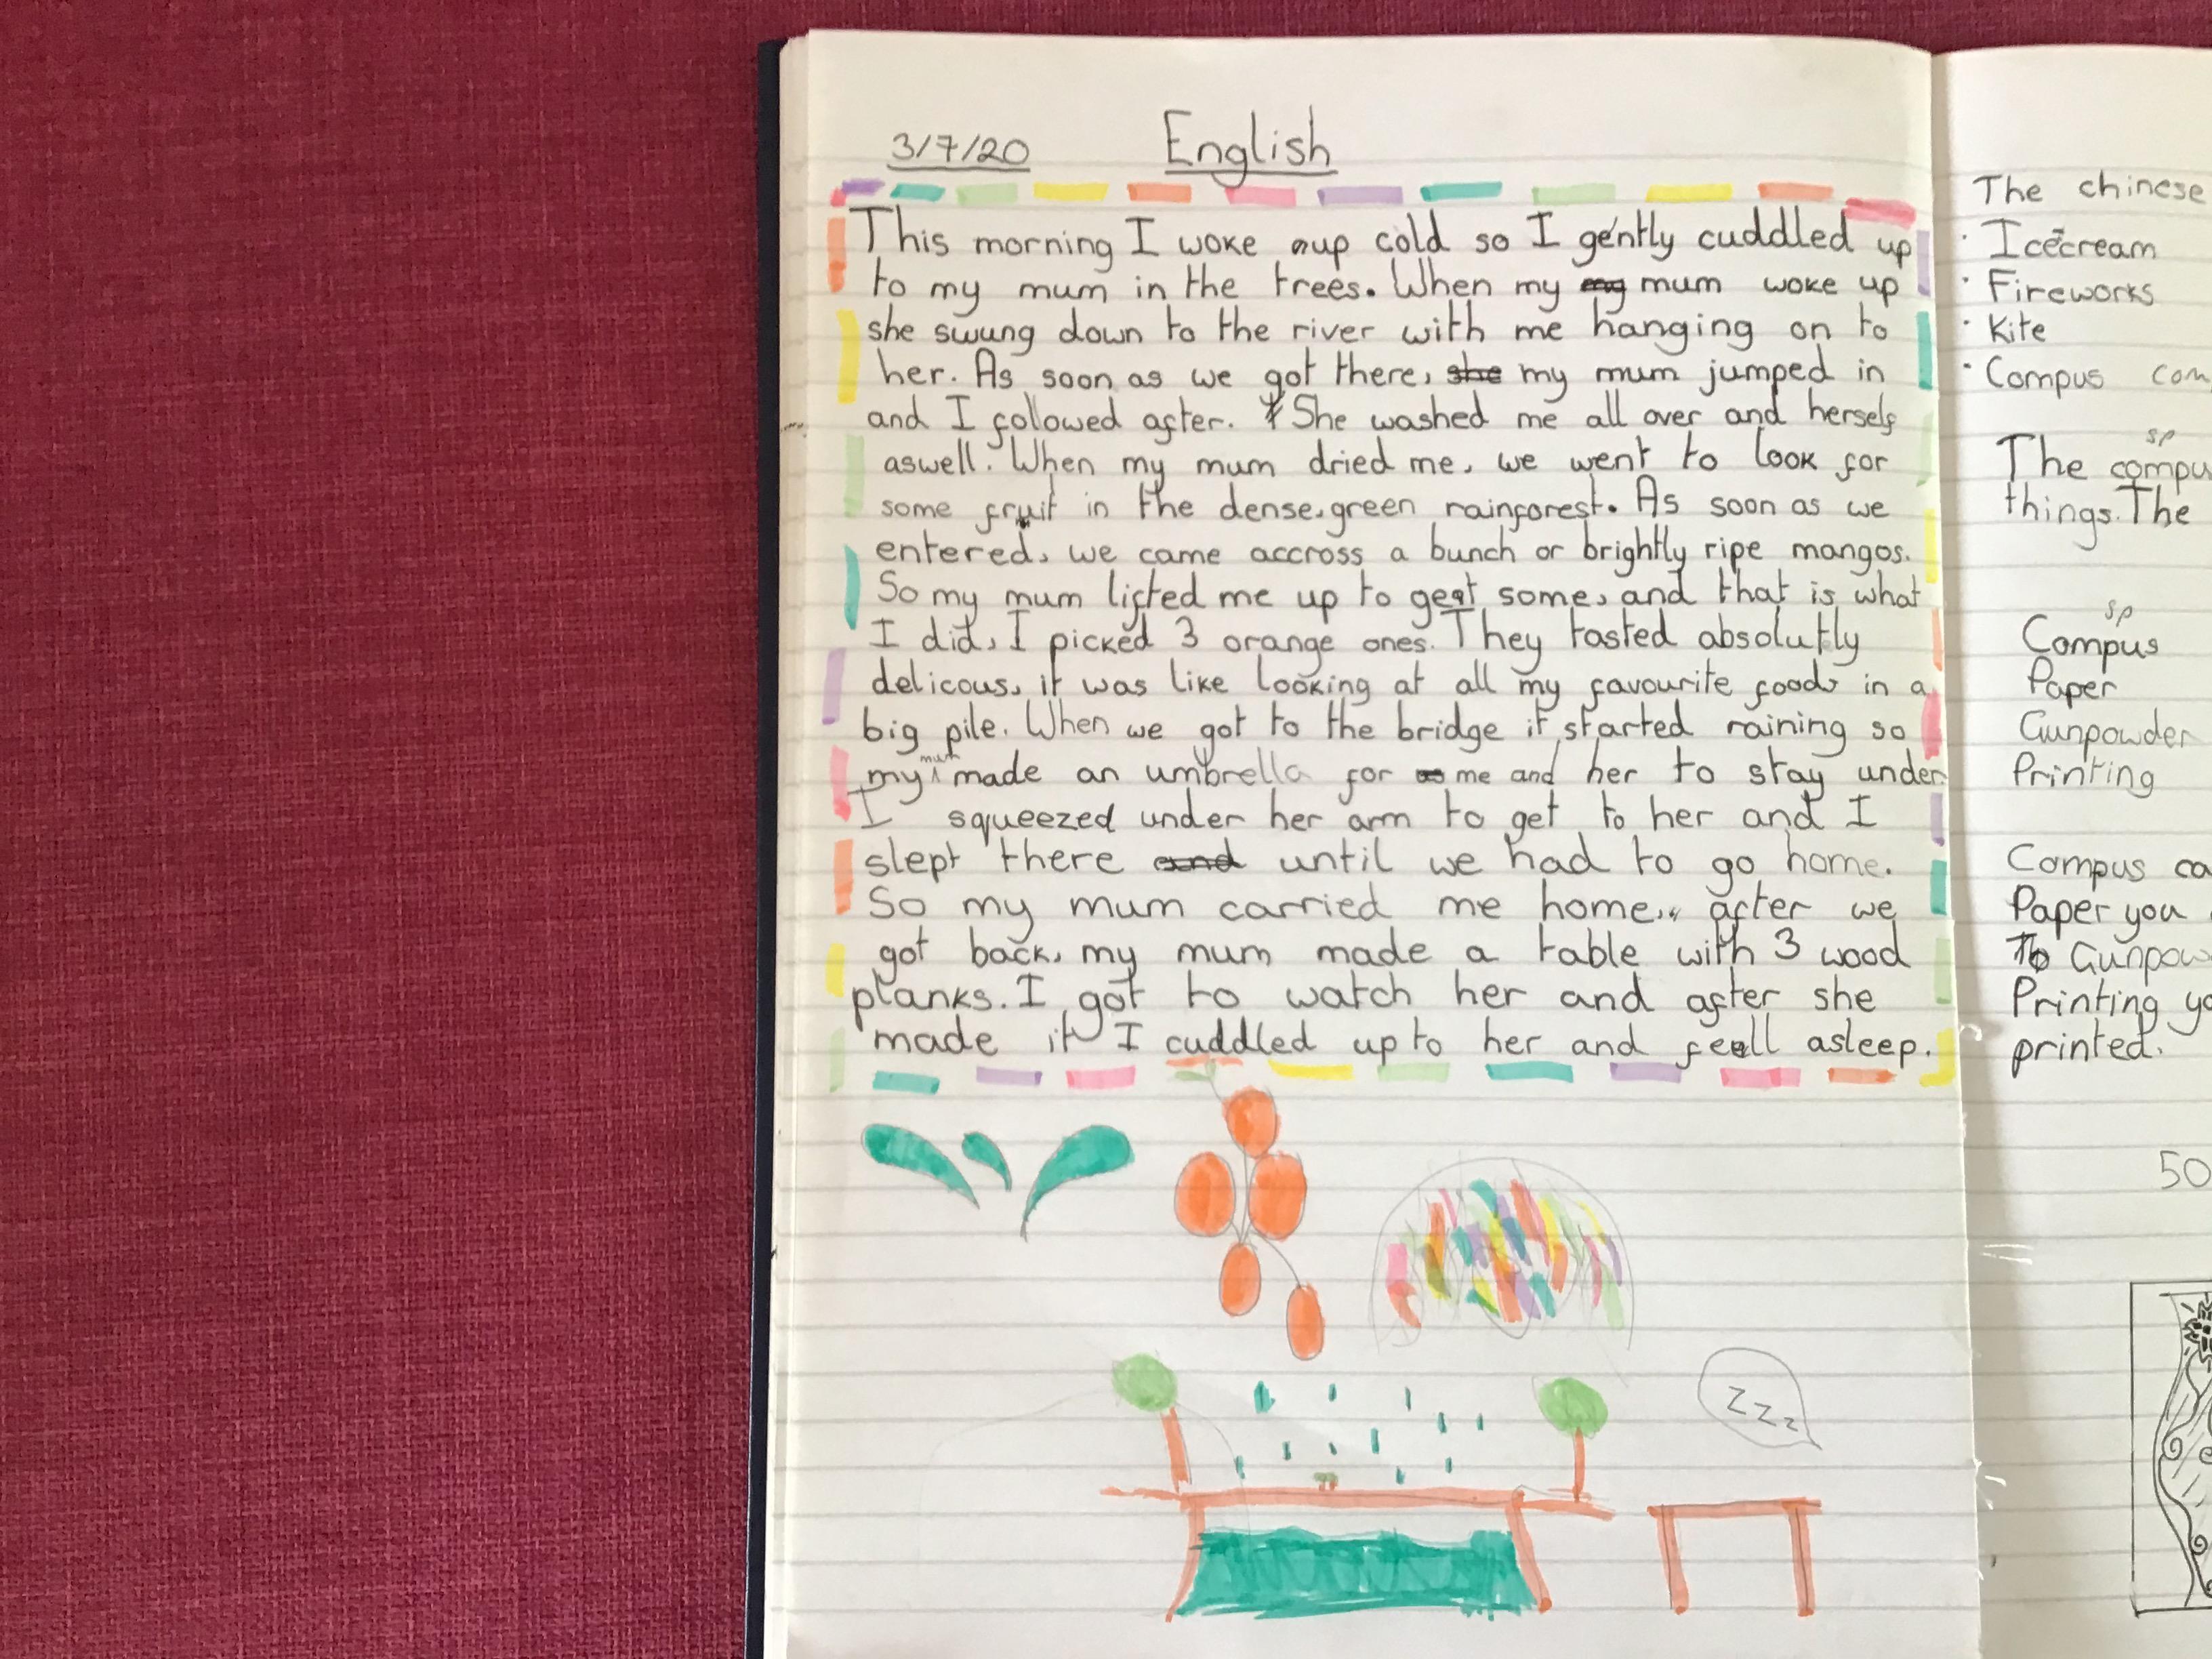 3/7/20 English
This morning I woke up cold so I gently cuddled up
to my mum in the trees. When my my mum woke up
she swung down to the river with me hanging on to
her. As soon as we got there, she my mum jumped in
and I followed after. She washed me all over and herself
aswell. When my mum dried me, we went to look for
some fruit in the dense, green rainforest. As soon as we
entered, we came accross a bunch or brightly ripe mangos.
So my mum lifted me up to get some, and that is what
I did, I picked 3 orange ones. They tasted absolutly
delicous, it was like looking at all my favourite foods in a
big pile. When we got to the bridge it started raining so
my mum made an umbrella for me and her to stay under.
I squeezed under her arm to get to her and I
slept there and until we had to go home.
So my mum carried me home, after we
got back, my mum made a table with 3 wood
planks. I got to watch her and after she
made it I cuddled up to her and fell asleep.
zzz
The chinese
· Icecream
· Fireworks
· Kite
· Compus com
sp
The compu
things. The
sp
Compus
Paper
Gunpowder
Printing
Compus ca
Paper you
To Gunpow
Printing yo
printed.
50